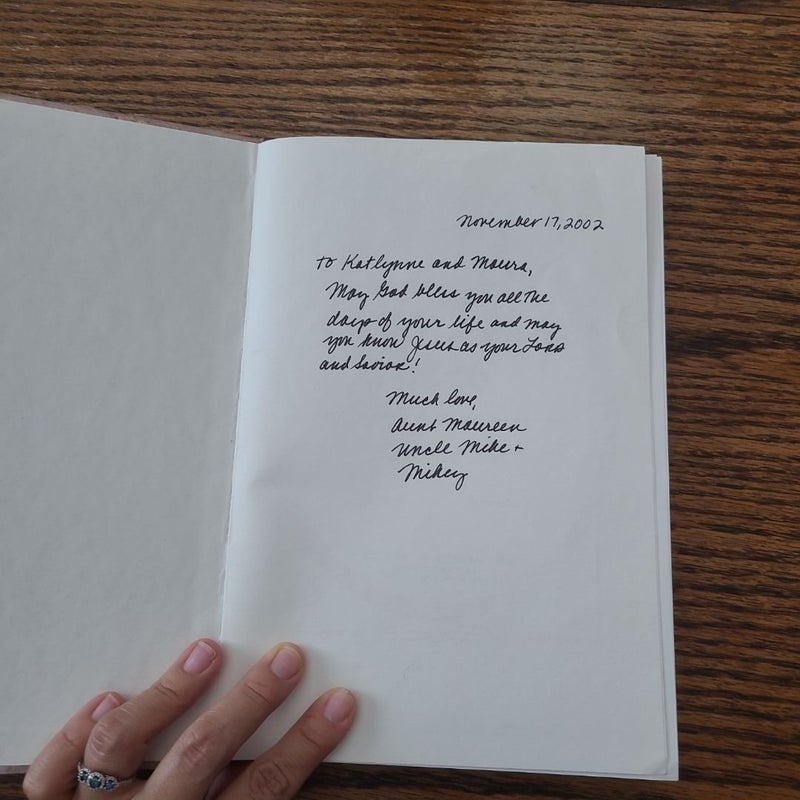 November 17, 2002
To Katlynne and Maura,
May God bless you all the
days of your life and may
you know Jesus as your Lord
and Savior!
Much love,
Aunt Maureen
Uncle Mike +
Mikey